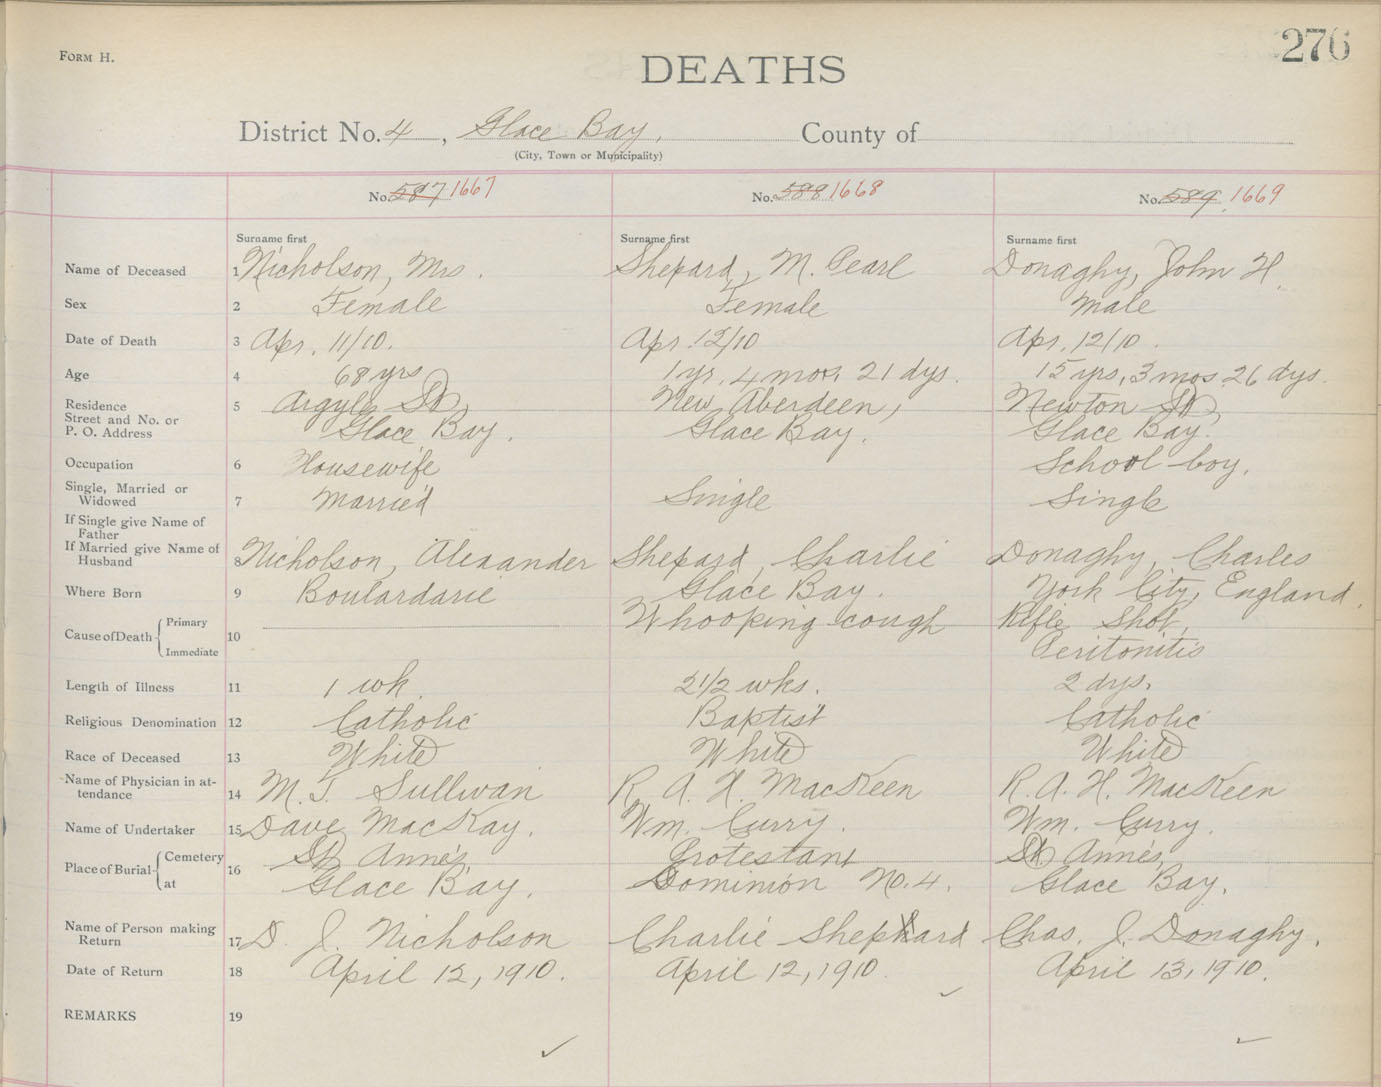 FORM H.
276
DEATHS
District No. 4, Glace Bay, County of
(City, Town or Municipality)
No. 587 1667 No. 588 1668 No. 589 1669
Surname first Surname first Surname first
Name of Deceased 1 Nicholson, Mrs. Shepard, M. Pearl Donaghy, John H.
Sex 2 Female Female Male
Date of Death 3 Apr. 11/10. Apr. 12/10 Apr. 12/10.
Age 4 68 yrs 1 yr. 4 mos. 21 dys. 15 yrs, 3 mos 26 dys.
Residence 5 Argyle St, New Aberdeen, Newton St,
Street and No. or
P. O. Address Glace Bay. Glace Bay. Glace Bay.
Occupation 6 Housewife School boy.
Single, Married or
Widowed 7 Married Single Single
If Single give Name of
Father
If Married give Name of
Husband 8 Nicholson, Alexander Shepard, Charlie Donaghy, Charles
Where Born 9 Boulardarie Glace Bay. York City, England.
Cause of Death Primary 10 Whooping cough Rifle Shot,
Immediate Peritonitis
Length of Illness 11 1 wk. 2 1/2 wks. 2 dys.
Religious Denomination 12 Catholic Baptist Catholic
Race of Deceased 13 White White White
Name of Physician in at-
tendance 14 M. T. Sullivan R. A. H. MacKeen R. A. H. MacKeen
Name of Undertaker 15 Dave MacKay. Wm. Curry. Wm. Curry.
Place of Burial Cemetery 16 St Anne's, Protestant St Anne's,
at Glace Bay. Dominion No. 4. Glace Bay.
Name of Person making
Return 17 D. J. Nicholson Charlie Shephard Chas. J. Donaghy.
Date of Return 18 April 12, 1910. April 12, 1910. April 13, 1910.
REMARKS 19